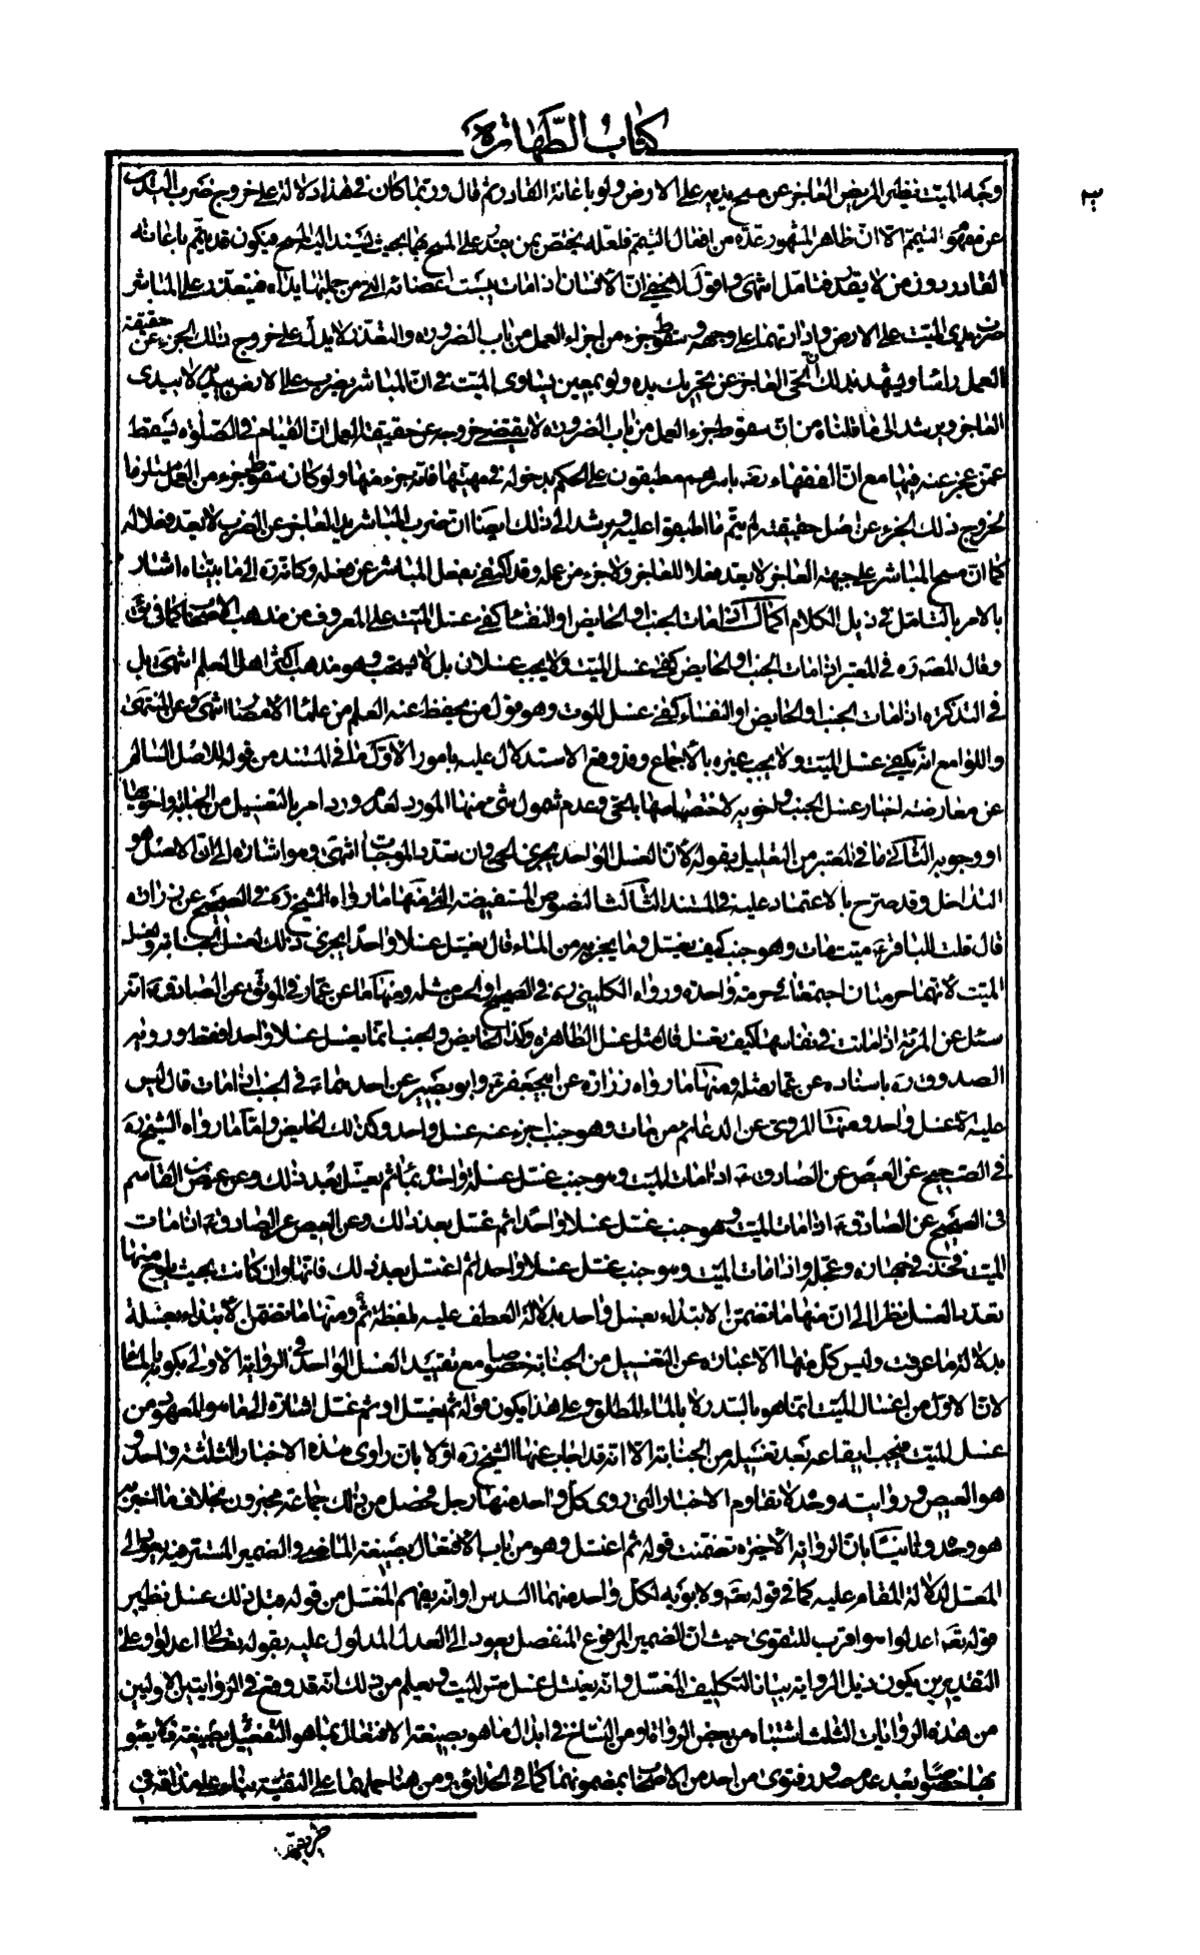 كتاب الطهارة
٣
وجه الميت نظير المريض العاجز عن مسح يديه على الارض ولو باعانة القادر ثم قال وربما كان في هذا دلالة على خروج ضرب اليدين
عن مفهوم التيمم الا ان ظاهر المشهور عده من افعال التيمم فلعله يختص بمن يقدر على المسح بهما بحيث يستند اليه المسح فيكون قد يتم باعانته
القادر دون من لا يقدر فتامل انتهى واقول لا يخفى ان الانسان اذا مات يبست اعضائه التي من جملتها يداه فيتعذر على المباشر
ضرب يدي الميت على الارض وادارتهما على وجهه وسقوط جزء من اجزاء العمل من باب الضرورة والتعذر لا يدل على خروج ذلك الجزء عن حقيقة
العمل راسا ويشهد بذلك ان الحي العاجز عن تحريك يده ولو بمعين يساوى الميت في ان المباشر يضرب على الارض بيده لا بيدى
العاجز ويرشد الى ما قلناه من ان سقوط جزء العمل من باب الضرورة لا يقتضي خروجه عن حقيقة العمل ان القيام في الصلوة يسقط
عمن عجز عنه فيها مع ان الفقهاء رضه باسرهم مطبقون على الحكم بدخوله في مهيتها فانه جزء منها ولو كان سقوط جزء من العمل مستلزما
لخروج ذلك الجزء عن اصل حقيقته لم يتم ما اطبقوا عليه ويرشد الى ذلك ايضا ان ضرب المباشر يد العاجز عن الضرب لا يعد فعلا له
كما ان مسح المباشر على جبهة العاجز لا يعد فعلا للعاجز ولا جزء من عمله وقد اكتفى بفعل المباشر عن فعله وكانه ره الى ما بيناه اشار
بالامر بالتامل في ذيل الكلام اكمال اذا مات الجنب او الحايض او النفساء كفى غسل الميت على المعروف من مذهب الاصحاب كما في ئق
وقال المصنف ره في المعتبر اذا مات الجنب او الحايض كفى غسل الميت ولا يجب غسلان بل لا يستحب وهو مذهب اكثر اهل العلم انتهى بل
في التذكرة اذا مات الجنب او الحايض او النفساء كفى غسل الموت وهو قول من يحفظ عنه العلم من علماء الامصار انتهى وعن المنتهى
واللوامع انه يكفى غسل الميت ولا يجب غيره بالاجماع وقد وقع الاستدلال عليه بامور الاول ما في المستند من قوله للاصل السالم
عن معارضة اخبار غسل الجنب واخويه لاختصاصها بالحي وعدم شمول شئ منها المورد لعدم ورود امر بالتغسيل من الجنابة واخويها
او وجوبه الثاني ما في المعتبر من التعليل بقوله لان الغسل الواحد يجزى الحي وان تعدد الموجبات انتهى وهو اشارة الى ان الاصل هو
التداخل وقد صرح بالاعتماد عليه في المستند الثالث النصوص المستفيضة التي منها ما رواه الشيخ ره في الصحيح عن زرارة
قال قلت للباقر ع ميت مات وهو جنب كيف يغسل وما يجزيه من الماء قال يغسل غسلا واحدا يجزى ذلك لغسل الجنابة وغسل
الميت لانهما حرمتان اجتمعتا في حرمة واحدة ورواه الكليني ره في الصحيح او الحسن مثله ومنها ما عن عمار في الموثق عن الصادق ع انه
سئل عن المرئة اذا ماتت في نفاسها كيف تغسل قال مثل غسل الطاهرة وكذا الحايض والجنب انما يغسل غسلا واحدا فقط ورويه
الصدوق ره باسناده عن عمار مثله ومنها ما رواه زرارة عن ابيجعفر ع وابو بصير عن احدهما ع في الجنب اذا مات قال ليس
عليه الا غسل واحد ومنها المروى عن الدعائم من مات وهو جنب اجزء عنه غسل واحد وكذلك الحايض واما ما رواه الشيخ ره
في الصحيح عن العيص عن الصادق ع اذا مات الميت وهو جنب غسل غسلة واحدة ثم يغسل بعد ذلك وعن عيص بن القاسم
في الصحيح عن الصادق ع اذا مات الميت وهو جنب غسل غسلا واحدا ثم غسل بعد ذلك وعن العيص عن الصادق ع اذا مات
الميت فخذ في جهازه وعجله واذا مات الميت وهو جنب غسل غسلا واحدا ثم اغتسل بعد ذلك فانها وان كانت بحيث يلوح منها
تعدد الغسل نظرا الى ان منها ما تضمن الابتداء بغسل واحد بدلالة العطف عليه بلفظة ثم ومنها ما تضمن الابتداء بغسلة
بدلالة ما عرفت وليس كل منهما الا عبارة عن التغسيل من الجنابة خصوصا مع تقييد الغسل الواحد في الرواية الاولى بكونه بالماء
لان الاول من اغسال الميت انما هو بالسدر لا بالماء المطلق وعلى هذا يكون قوله ثم يغسل او ثم غسل اشارة الى ما هو المعهود من
غسل الميت فيجب ايقاعه بعد تغسيله من الجنابة الا انه قد اجاب عنها الشيخ ره اولا بان راوى هذه الاخبار الثلثة واحد و
هو العيص وروايته وحده لا تقاوم الاخبار التي روى كل واحد منها رجل فحصل من ذلك جماعة مخبرون بخلاف ما اخبر به
هو وحده وثانيا بان الرواية الاخيرة تضمنت قوله ثم اغتسل وهو من باب الافتعال بصيغة الماضي والضمير المستتر فيه يعود الى
المغسل لدلالة المقام عليه كما في قوله تعه ولابويه لكل واحد منهما السدس او انه يفهم المغسل من قوله قبل ذلك غسل نظير
قوله تعه اعدلوا هو اقرب للتقوى حيث ان الضمير المرفوع المنفصل يعود الى العدل المدلول عليه بقوله تعالى اعدلوا وعلى
التقديرين يكون ذيل الرواية بيانا لتكليف المغسل وانه يغتسل غسل مس الميت ويعلم من ذلك انه قد وقع في الروايتين الاوليين
من هذه الروايات الثلث اشتباه من بعض الرواة او من النساخ في ابدال ما هو بصيغة الافتعال بما هو التفعيل بصيغة فلا يعبؤ
بها خصوصا بعد عدم صدور فتوى من احد من الاصحاب بمضمونهما كما في الحدائق ومن هنا حملهما على التقية بناء على مذاقه في
طريقته